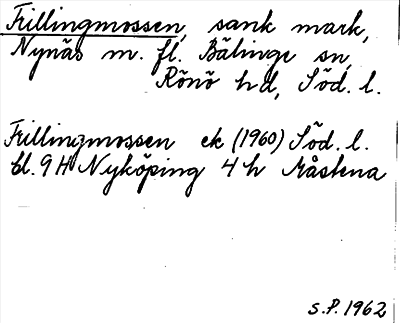 Frillingmossen, sank mark,
Nynäs m. fl. Bälinge sn,
Rönö hd, Söd. l.
Frillingmossen ek (1960) Söd. l.
bl. 9H Nyköping 4h Måstena
S.P. 1962